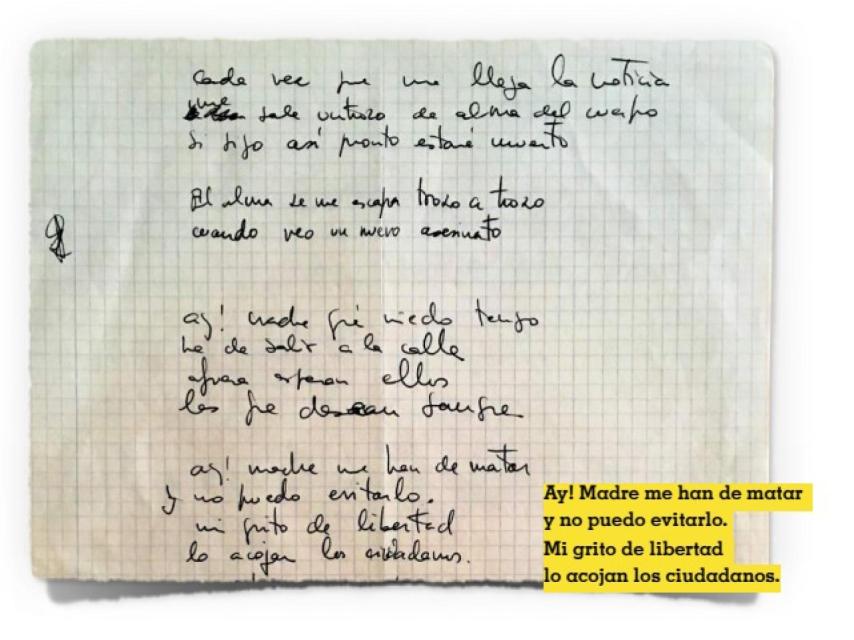 Cada vez que me llega la noticia
me sale un trozo de alma del cuerpo
Si sigo así pronto estaré muerto
El alma se me escapa trozo a trozo
cuando veo un nuevo asesinato
ay! madre qué miedo tengo
he de salir a la calle
afuera esperan ellos
los que desean sangre
ay! madre me han de matar
y no puedo evitarlo.
mi grito de libertad
lo acojan los ciudadanos.
Ay! Madre me han de matar
y no puedo evitarlo.
Mi grito de libertad
lo acojan los ciudadanos.